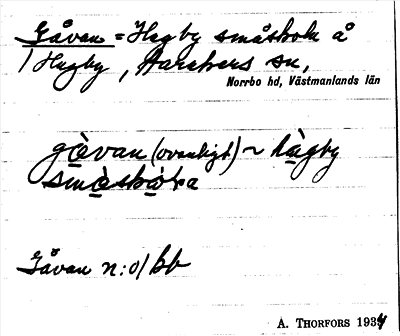 Gåvan = Hagby småskola å
1 Hagby, Harakers sn,
Norrbo hd, Västmanlands län
gå̀van (ovanligt) ~ hàgby
småskola
Gåvan n:o 1 bb
A. THORFORS 1934